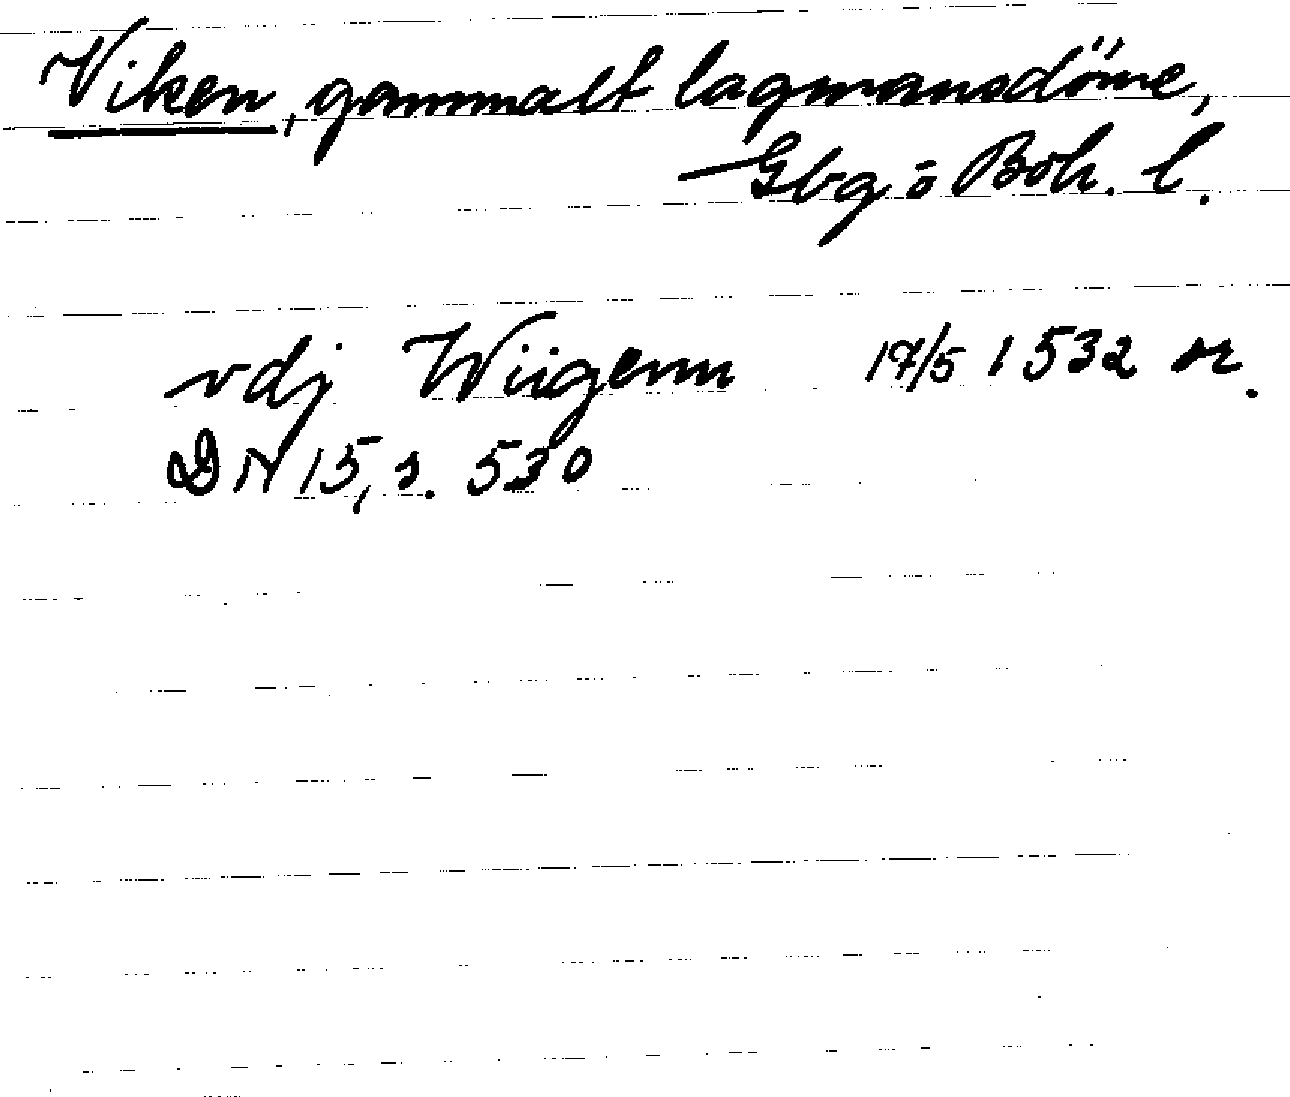 Viken, gammalt lagmansdöme,
Gbg o Boh. l.
vdj Wiigenn 17/5 1532 or.
DN 15, s. 530